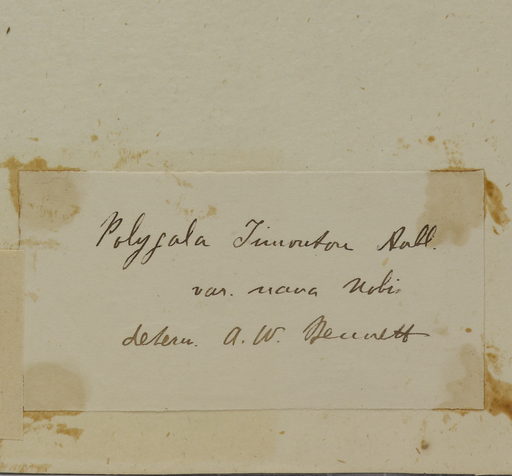 Polygala Timoutou Aubl.
var. nana Nobis
determ. A. W. Bennett